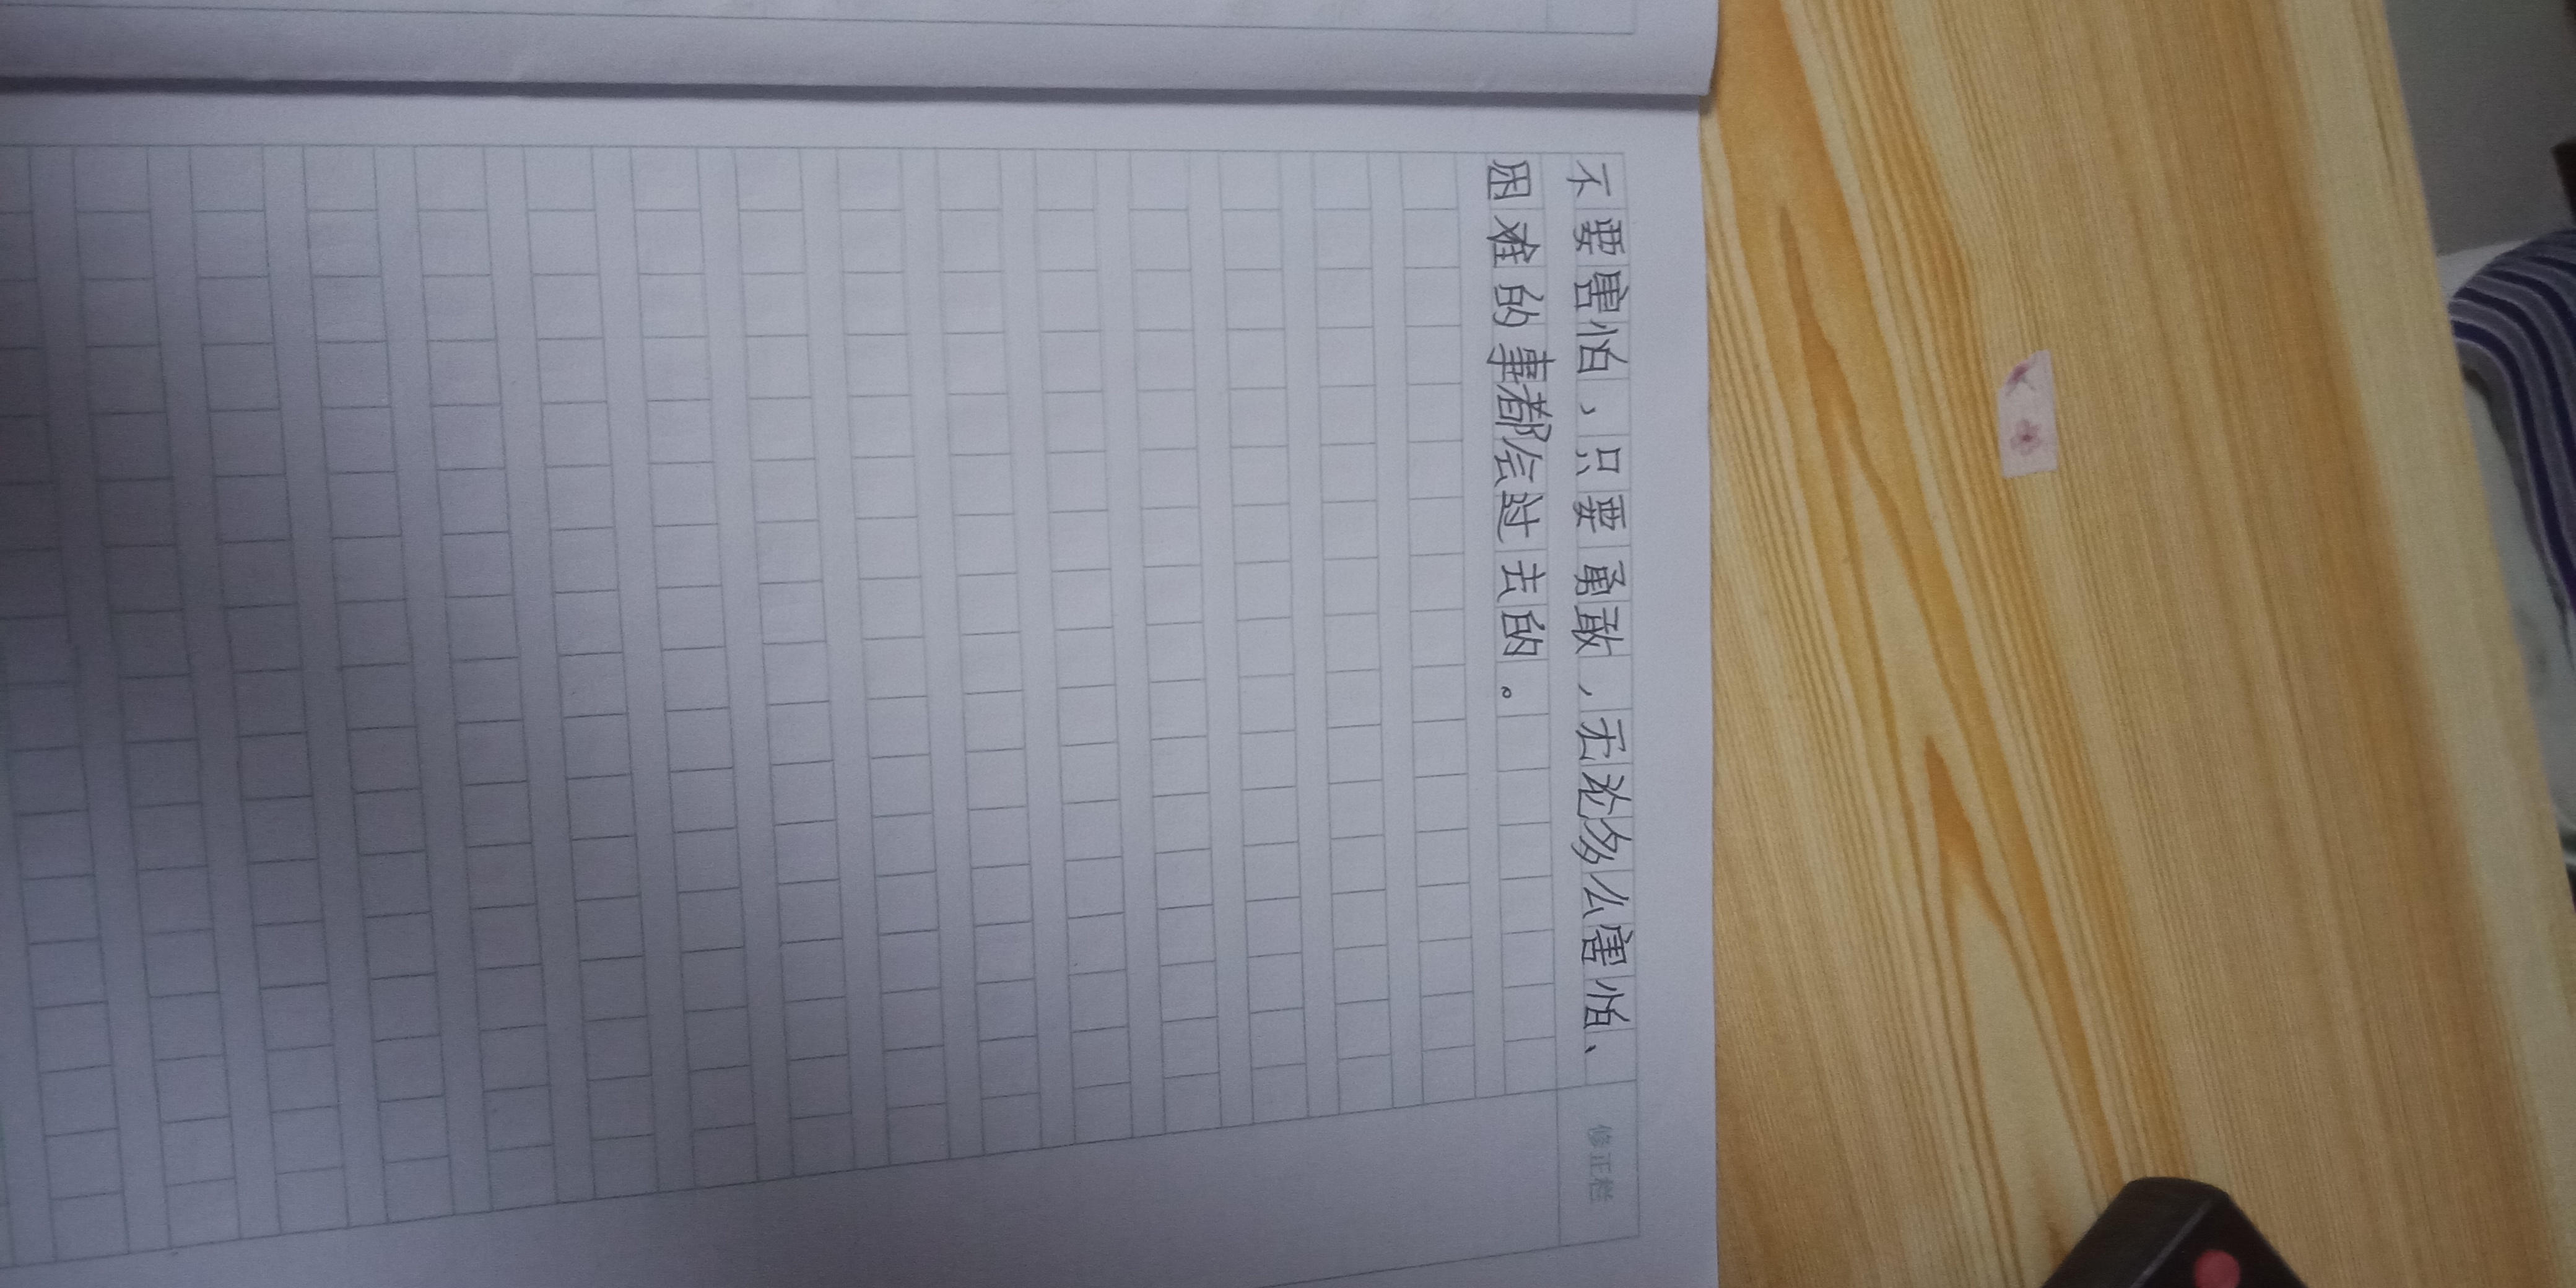 不要害怕，只要勇敢，无论多么害怕、
困难的事都会过去的。
修正栏